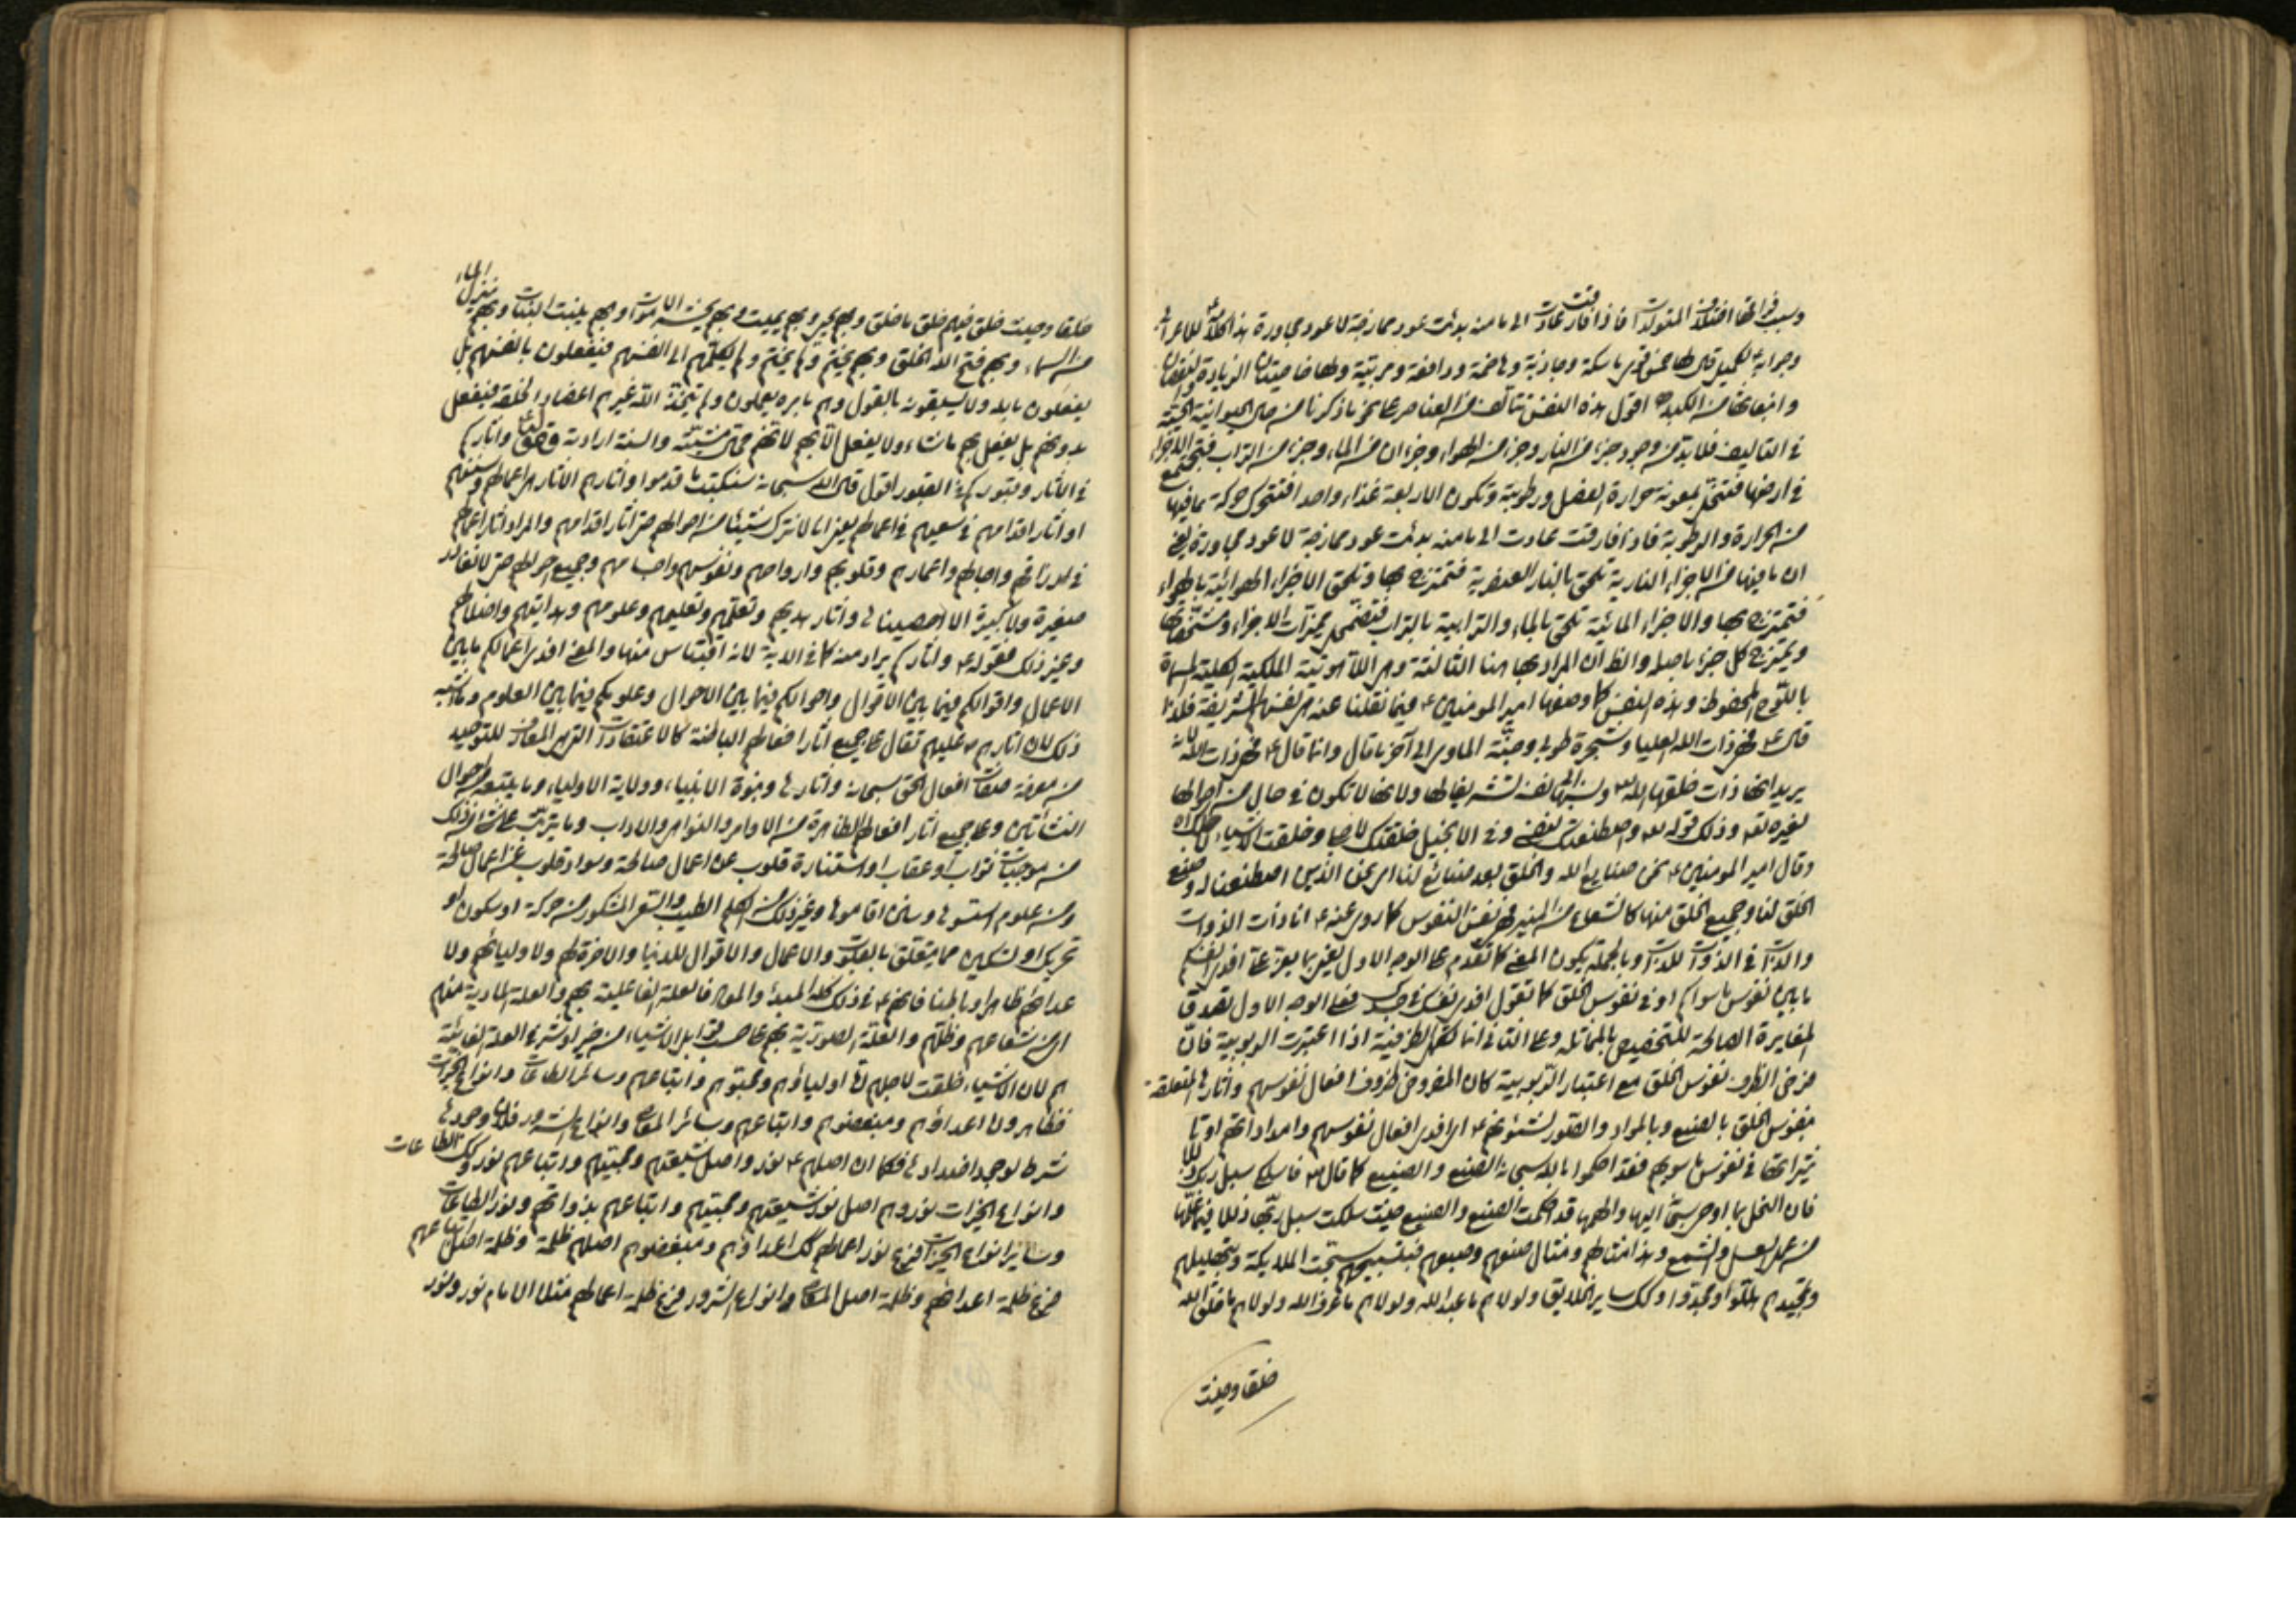 وسبب فراقها اختلاف المتولدات فاذا فارقت عادت الى ما منه بدئت عود ممازجة لا عود مجاورة هذا كلامه للاعرابي
وجوابه لكميل قال لها خمس قوى ماسكة وجاذبة وهاضمة ودافعة ومربية ولها خاصيتان الزيادة والنقصان
وانبعاثها من الكبد اقول هذه النفس تتألف من العناصر على نحو ما ذكرنا من الحيوانية الحسية
في التأليف فلا بد من وجود جزء من النار وجزء من الهواء وجزءان من الماء وجزء من التراب فتجتمع الاجزاء
في ارضها فتنحل بمعونة حرارة الفصل ورطوبة وتكون الاربعة غذاء واحدا فتتحرك حركة بما فيها
من الحرارة والرطوبة فاذا فارقت عادت الى ما منه بدئت عود ممازجة لا عود مجاورة يعني
ان ما فيها من الاجزاء النارية تلحق بالنار العنصرية فتمتزج بها وتلحق الاجزاء الهوائية بالهواء
فتمتزج بها والاجزاء المائية تلحق بالماء والترابية بالتراب فتضمحل مميزات الاجزاء ومشخصاتها
ويمتزج كل جزء باصله والظ ان المراد بها هنا الثالثة وهي اللاهوتية الملكية الكلية المسماة
باللوح المحفوظ وهذه النفس كما وصفها امير المؤمنين ع فيما نقلنا عنه هي نفسهم الشريفة فلذا
قال ع فهي ذات الله العليا وشجرة طوبى وجنة المأوى الى آخر ما قال وانما قال ع فهي ذات الله لانه
يريد انها ذات خلقها الله ونسبها الى نفسه تشريفا لها ولانها لا تكون في حال من احوالها
لغيره تعالى وذلك قوله تعالى واصطنعتك لنفسي وفي الانجيل خلقتك لاجلي وخلقت الاشياء لاجلك
وقال امير المؤمنين ع نحن صنايع الله والخلق بعد صنائع لنا اي نحن الذين اصطنعنا له وصنع
الخلق لنا وجميع الخلق منها كالشعاع من المنير فهي نفس النفوس كما روي عنه ع انا ذات الذوات
والذات في الذوات للذات وبالجملة يكون المعنى كما تقدم على الوجه الاول يعني بما يعز علي افدي انفسكم
ما بين نفوس ما سواكم او في نفوس الخلق كما تقول افدي نفسك في جسدك فعلى الوجه الاول تصدق
المغايرة الصالحة للتخصيص بالمماثلة وعلى الثاني انما تفهم الظرفية اذا اعتبرت الربوبية فان
فرض الظرف نفوس الخلق مع اعتبار الربوبية كان المفروض ظروف افعال نفوسهم وآثارها المتعلقة
بنفوس الخلق بالصنع وبالمراد والصور لشئونهم اي افدي افعال نفوسهم وامداداتهم او تا
ثيراتها في نفوس ما سويهم فقد احكموا بالله سبحانه الصنع والصنيع كما قال فاسلكي سبل ربك ذللا
فان النحل بما اوحى ربها اليها والهمها قد احكمت الصنع والصنيع حيث سلكت سبل ربها ذللا فيما علمها
من عمل العسل والشمع وهذا مثالهم ومثال صنعهم وصنيعهم فبتسبيحهم سبحت الملائكة وبتهليلهم
وتمجيدهم هللوا ومجدوا وكك ساير الخلايق ولولاهم ما عبد الله ولولاهم ما عرف الله ولولاهم ما خلق الله
خلقا وحيث
خلقا وحيث خلق فبهم خلق ما خلق وبهم يحيي وبهم يميت وبهم يحيي الاموات وبهم ينبت النبات وبهم ينزل الماء
من السماء وبهم فتح الله الخلق وبهم يختم ولما يختم ولم يكلهم الى انفسهم فيفعلون بانفسهم بل
يفعلون بالله ولا يسبقونه بالقول وهم بامره يعملون ولم يتخذ الله غيرهم اعضادا لخلقه فيفعل
بدونهم بل يفعل بهم ما شاء ولا يفعل الا بهم لانهم محال مشيته والسنة ارادته وآثاركم
في الآثار وقبوركم في القبور اقول قال الله سبحانه سنكتب ما قدموا وآثارهم الآثار هي اعمالهم وسننهم
او آثار اقدامهم في سعيهم في اعمالهم يعني انا لا نترك شيئا من احوالهم حتى آثار اقدامهم والمراد آثار اعمالهم
في ارزاقهم وآجالهم واعمارهم وقلوبهم وارواحهم ونفوسهم واجسامهم وجميع احوالهم حتى لا نغادر
صغيرة ولا كبيرة الا احصيناها وآثار هديهم وتعلمهم وتعليمهم وعلومهم وهدايتهم واضلالهم
وغير ذلك فقوله ع وآثاركم يراد منه كما في الآية لانه اقتباس منها والمعنى افدي اعمالكم ما بين
الاعمال واقوالكم فيما بين الاقوال واحوالكم فيما بين الاحوال وعلومكم فيما بين العلوم وما اشبه
ذلك لان آثارهم ع عليهم تقال على جميع آثار افعالهم الباطنة كالاعتقادات التي هي المعارف للتوحيد
من معرفة صفات افعال الحق سبحانه وآثارها ونبوة الانبياء وولاية الاولياء وما يتبعها من احوال
النشأتين وعلى جميع آثار افعالهم الظاهرة من الاوامر والنواهي والآداب وما يترتب على شيء من ذلك
من موجبات ثواب او عقاب او استنارة قلوب عن اعمال صالحة وسواد قلوب عن اعمال طالحة
ومن علوم اسسوها وسنن اقاموها وغير ذلك من الكلم الطيب والسعي المشكور من حركة او سكون او
تحريك او تسكين مما يتعلق بالقلوب والاعمال والاقوال للدنيا والآخرة لهم ولاوليائهم ولا
عدائهم ظاهرا وباطنا فانهم ع في ذلك كله المبدأ والمعاد فالعلة الفاعلية بهم والعلة المادية منهم
اي من شعاعهم وظلهم والعلة الصورية بهم على حسب قوابل الاشياء من خير او شر والعلة الغائية
هم لان الاشياء خلقت لاجلهم فاما اولياؤهم ومحبوهم واتباعهم وسائر الطاعات وانواع الخيرات
فظاهر واما اعداؤهم ومبغضوهم واتباعهم وسائر المعاصي وانواع الشرور فلان وجودها
شرط لوجود اضدادها فكما ان اصلهم ع نور واصل شيعتهم ومحبيهم واتباعهم نور وكك الطاعات
وانواع الخيرات نور وهم اصل نور شيعتهم ومحبيهم واتباعهم بذواتهم ونور الطاعات
وساير انواع الخيرات فرع نور اعمالهم كك اعداؤهم ومبغضوهم اصلهم ظلمة وظلمة اصل اتباعهم
فرع ظلمة اعدائهم وظلمة اصل المعاصي وانواع الشرور فرع ظلمة اعمالهم مثلا الامام نور ونور